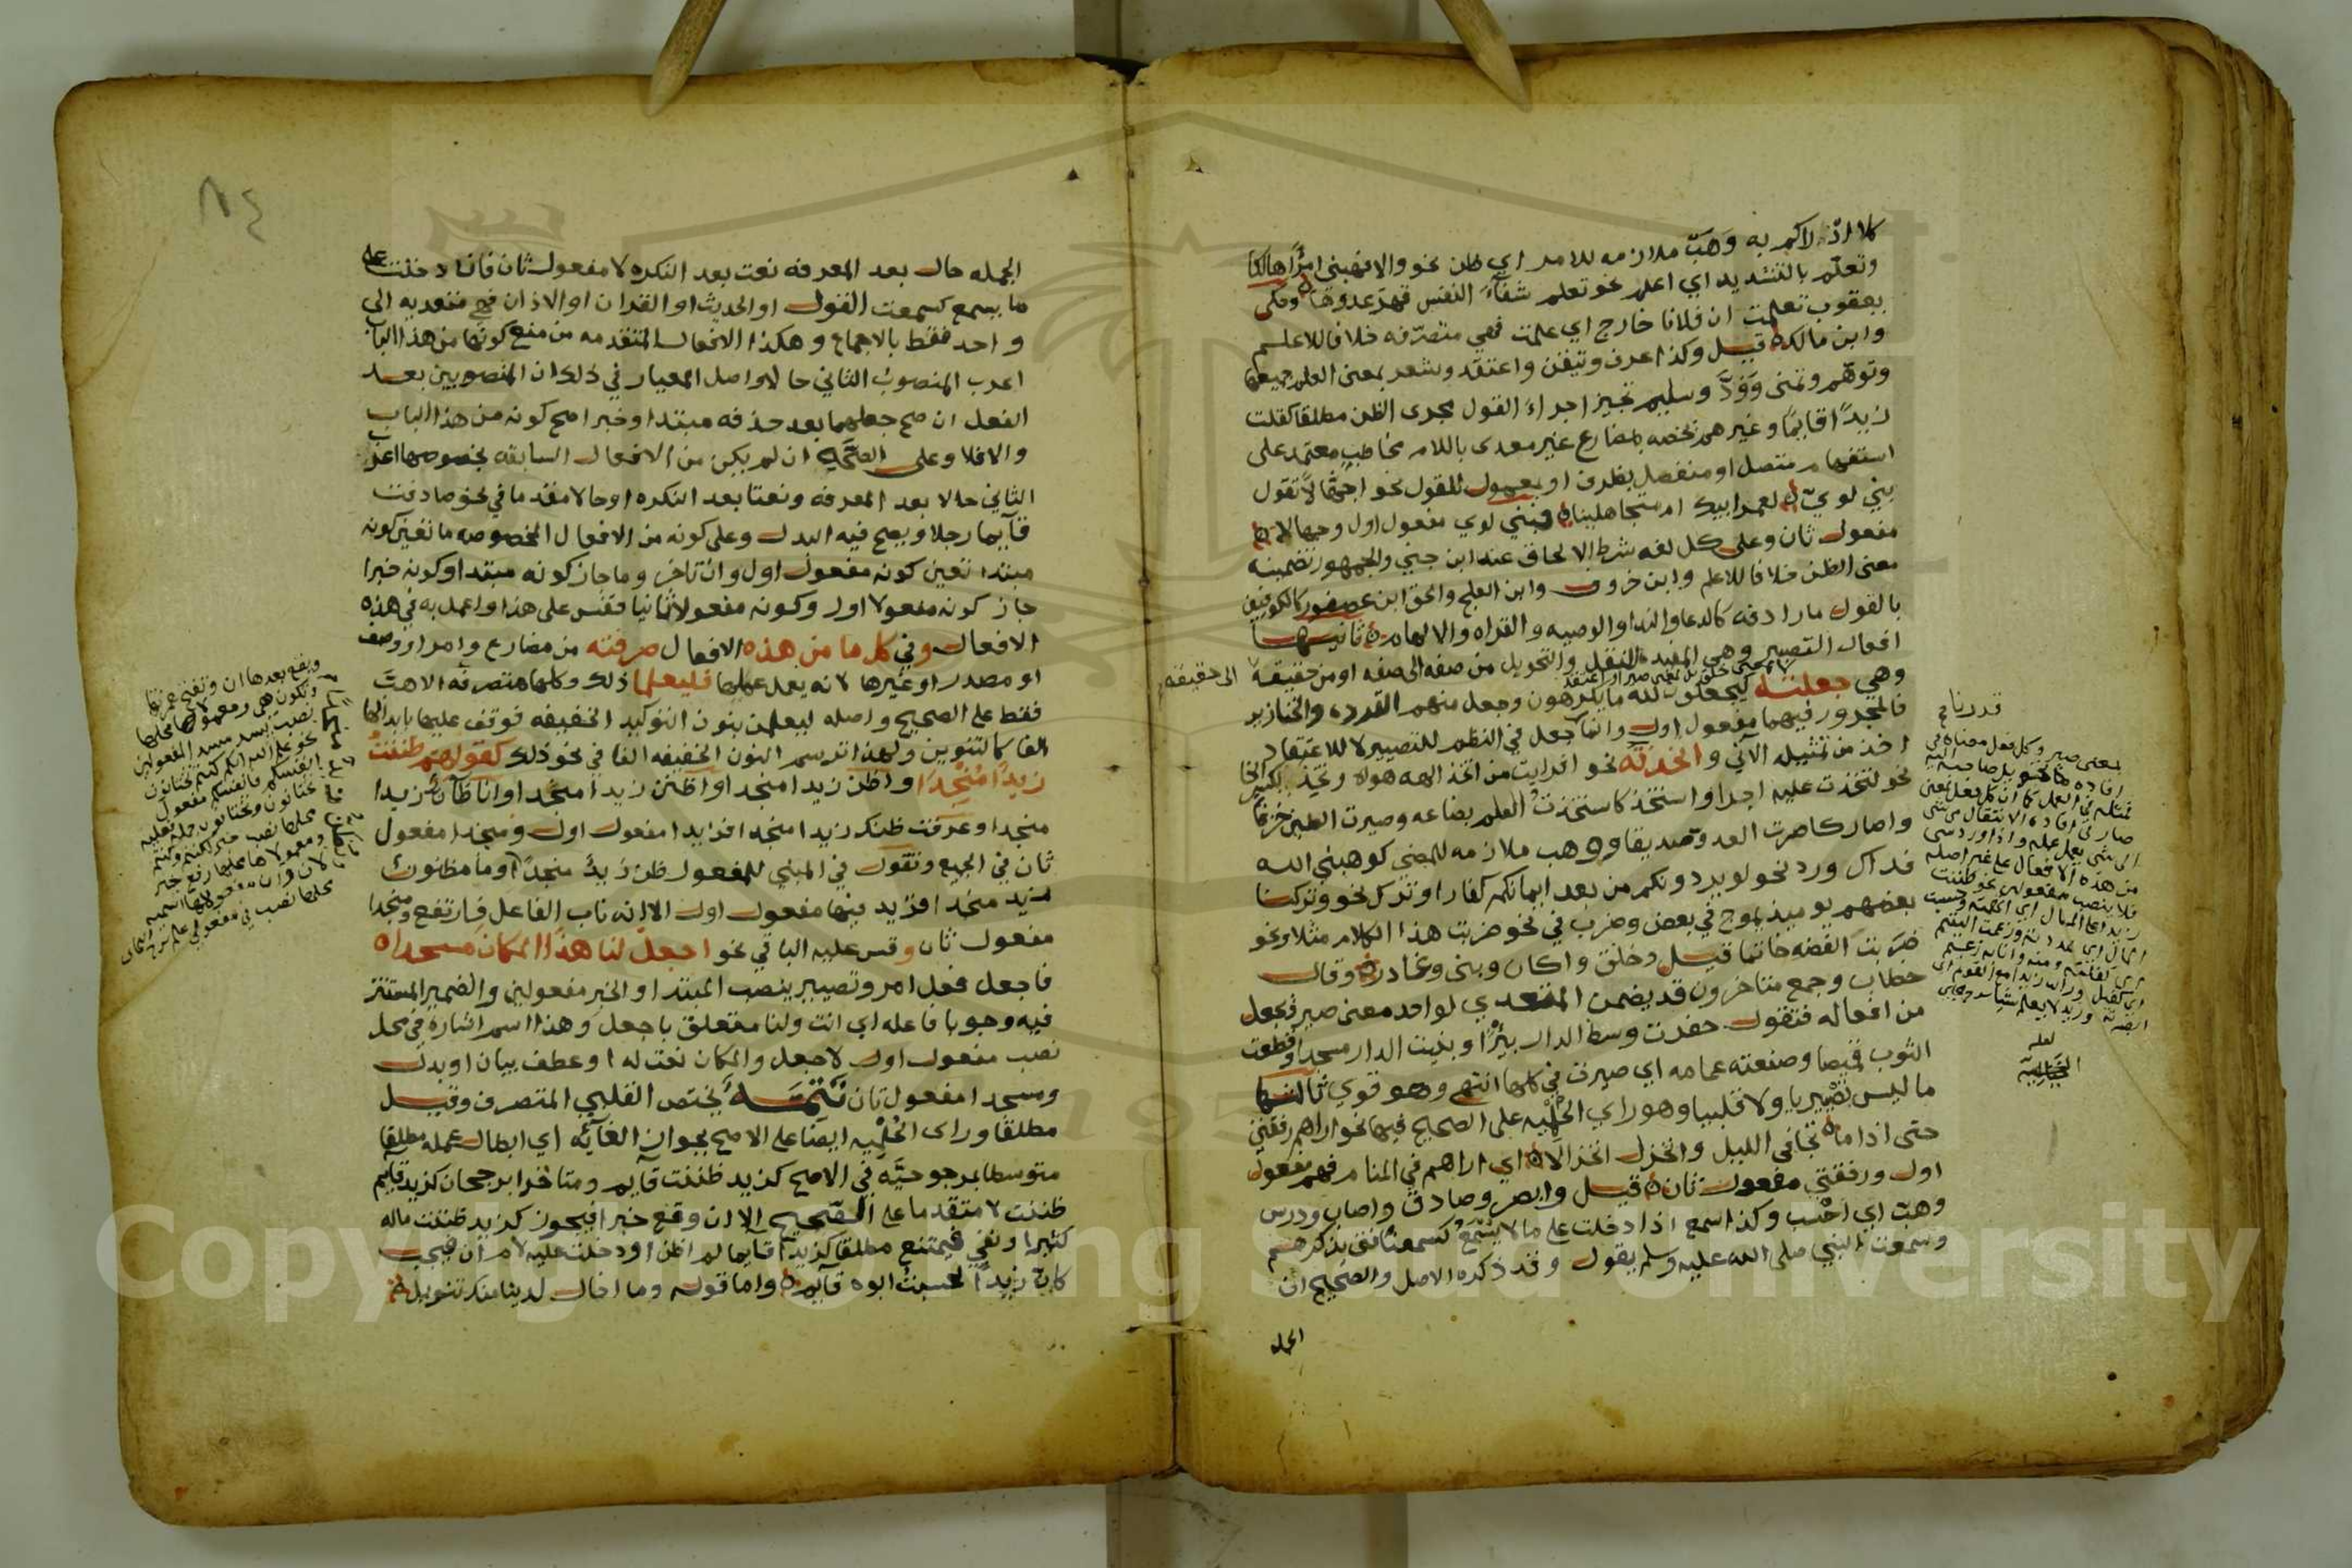 كلا اذ لاكم به وَهَبَ ملازمه للامر اي ظن نحو والا فهبني امرًا هالكا
وتعلّم بالتشديد اي اعلم نحو تعلم شفآء النفس قهرَ عدوها وحكى
يعقوب تعلمت ان فلانا خارج اي علمت فهي متصرّفه خلافا للاعلم
وابن مالك قيل وكذا عرف وتيقن واعتقد وشعر بمعنى العلم جميعها
وتوهّم وتمنى وَوَدَّ وسليم تجيز اجراءَ القول مجرى الظن مطلقا كقلت
زيدًا قايمًا وغيرهم تخصه بمضارع غير معدى باللام مخاطبٍ معتمد على
استفهام متصل او منفصل بظرف او بمعمول للقول نحو اجهّالًا تقول
بني لويٍّ لعمر ابيك ام متجاهلينا فبني لوي مفعول اول وجهالا
مفعول ثان وعلى كل لغه شرط الالحاق عند ابن جني والجمهور تضمينه
معنى الظن خلافا للاعلم وابن خروف وابن العلج والحق ابن عصفور كالكوفيين
بالقول ما رادفه كالدعا والندا والوصيه والقراه والالهام ثانيها
افعال التصيير وهي المفيده للنقل والتحويل من صفه الى صفه او من حقيقة الى حقيقه
وهي جعلته كيجعلون لله ما يكرهون وجعل منهم القرده والخنازير
فالمجرور فيهما مفعول اول وانما جعل في النظم للتصيير لا للاعتقاد
اخذ من تمثيله الآتي واتخذته نحو افرايت من اتخذ الهه هواه وتخِذ بكسر الخا
نحو لتخذت عليه اجرا واستخذ كاستخذتُ العلم بضاعه وصيرت الطين خزفا
واصار كاصرت العدو صديقا ووهب ملازمه للمضي كوهبني الله
فداك ورد نحو لو يردونكم من بعد ايمانكم كفارا وترك نحو وتركنا
بعضهم يوميذ يموج في بعض وضرب في نحو ضربت هذا الكلام مثلا ونحو
ضربت الفضه خاتما قيل وخلق واكان وبنى وغادر وقال
خطاب وجمع متاخرون قد يضمن المتعدي لواحد معنى صير فيجعل
من افعاله فتقول حفرت وسط الدار بيرًا وبنيت الدار مسجدا وقطعت
الثوب قميصا وصنعته عمامه اي صيرت في كلها انتهى وهو قوي ثالثها
ما ليس تصْييريا ولا قلبيا وهو راي الحُلْميه على الصحيح فيها نحو اراهم رفقتي
حتى اذا ما تجافى الليل وانخزل انخزالا اي اراهم في المنام فهم مفعول
اول ورفقتي مفعول ثان قيل وابصر وصادف واصاب ودرس
وهبّ اي احْسب وكذا سمع اذا دخلت على ما لا يسْمَعُ كسمعنا فتى يذكرهم
وسمعت النبي صلى الله عليه وسلم يقول وقد ذكره الاصل والصحيح ان
الجمله
بمعنى صير وكل فعل معناه في
من هذه الافعال على غير اصله
فلا ينصب مفعولين نحو ظننت
لعله
الجمله حال بعد المعرفه نعت بعد النكره لا مفعول ثان فان دخلت على
ما يسمع كسمعت القول او الحديث او القران او الاذان فهي متعديه الى
واحد فقط بالاجماع وهكذا الافعال المتقدمه من منع كونها من هذا الباب
اعرب المنصوبَ الثاني حالا واصل المعيار في ذلك ان المنصوبين بعد
الفعل ان صح جعلهما بعد حذفه مبتدا وخبرا صح كونه من هذا الباب
والا فلا وعلى الصَّحيح ان لم يكن من الافعال السابقه بخصوصها اعرب
الثاني حالا بعد المعرفه ونعتا بعد النكره او حالا مقدما في نحو صادفت
قآيما رجلا ويصح فيه البدل وعلى كونه من الافعال المخصوصه ما تعين كونه
مبتدا تعين كونه مفعول اول وان تاخر وما جاز كونه مبتدا وكونه خبرا
جاز كونه مفعولا اول وكونه مفعولا ثانيا فقس على هذا واعمل به في هذه
الافعال وفي كل ما من هذه الافعال صرفته من مضارع وامر او وصف
او مصدر او غيرها لانه يعمل عملها فليعلما ذلك وكلها متصرفه الا هبَّ
فقط على الصحيح واصله ليعلمن بنون التوكيد الخفيفه فوقف عليها بابدالها
الفا كالتنوين ولهذا ترسم النون الخفيفه الفا في نحو ذلك كقولهم ظننتُ
زيدًا مُنْجِدًا واظن زيدا منجدا واظنن زيدا منجدا وانا ظآنٌ زيدا
منجدا وعرفت ظنك زيدا منجدا فزيدا مفعول اول ومنجدا مفعول
ثان في الجميع وتقول في المبني للمفعول ظن زيدٌ منجدًا وما مظنون
زيد منجدا فزيد فيها مفعول اول الا انه ناب الفاعل فارتفع ومنجدا
مفعول ثان وقس عليه الباقي نحو اجعل لنا هذا المكان مسجدا
فاجعل فعل امر وتصيير ينصب المبتدا والخبر مفعولين والضمير المستتر
فيه وجوبا فاعله اي انت ولنا متعلق باجعل وهذا اسم اشارة في محل
نصب مفعول اول لاجعل والمكان نعت له او عطف بيان او بدل
ومسجدا مفعول ثان تَتِمَّـةٌ يختص القلبي المتصرف وقيل
مطلقا وراى الحُلْميه ايضا على الاصح بجواز الغآئه اي ابطال عمله مطلقا
متوسطا بمرجوحيَّه في الاصح كزيد ظننت قآيم ومتاخرا برجحان كزيد قايم
ظننت لا متقدما على الصَّحيح الا ان وقع خبرا فيجوز كزيد ظننت ماله
كثيرا ونفي فيمتنع مطلقا كزيدا قايما لم اظن او دخلت عليه لام ان فيجب
كان زيدًا لحسبت ابوه قآيم واما قوله وما اخال لدينا منك تنويل
٨٤
ويقع بعدها ان وتفتح همزتها
وتكون هي ومعمولاها محلها
نصب تسد مسد المفعولين
نحو علم الله انكم كنتم تختانون
انفسكم فانفسكم مفعول